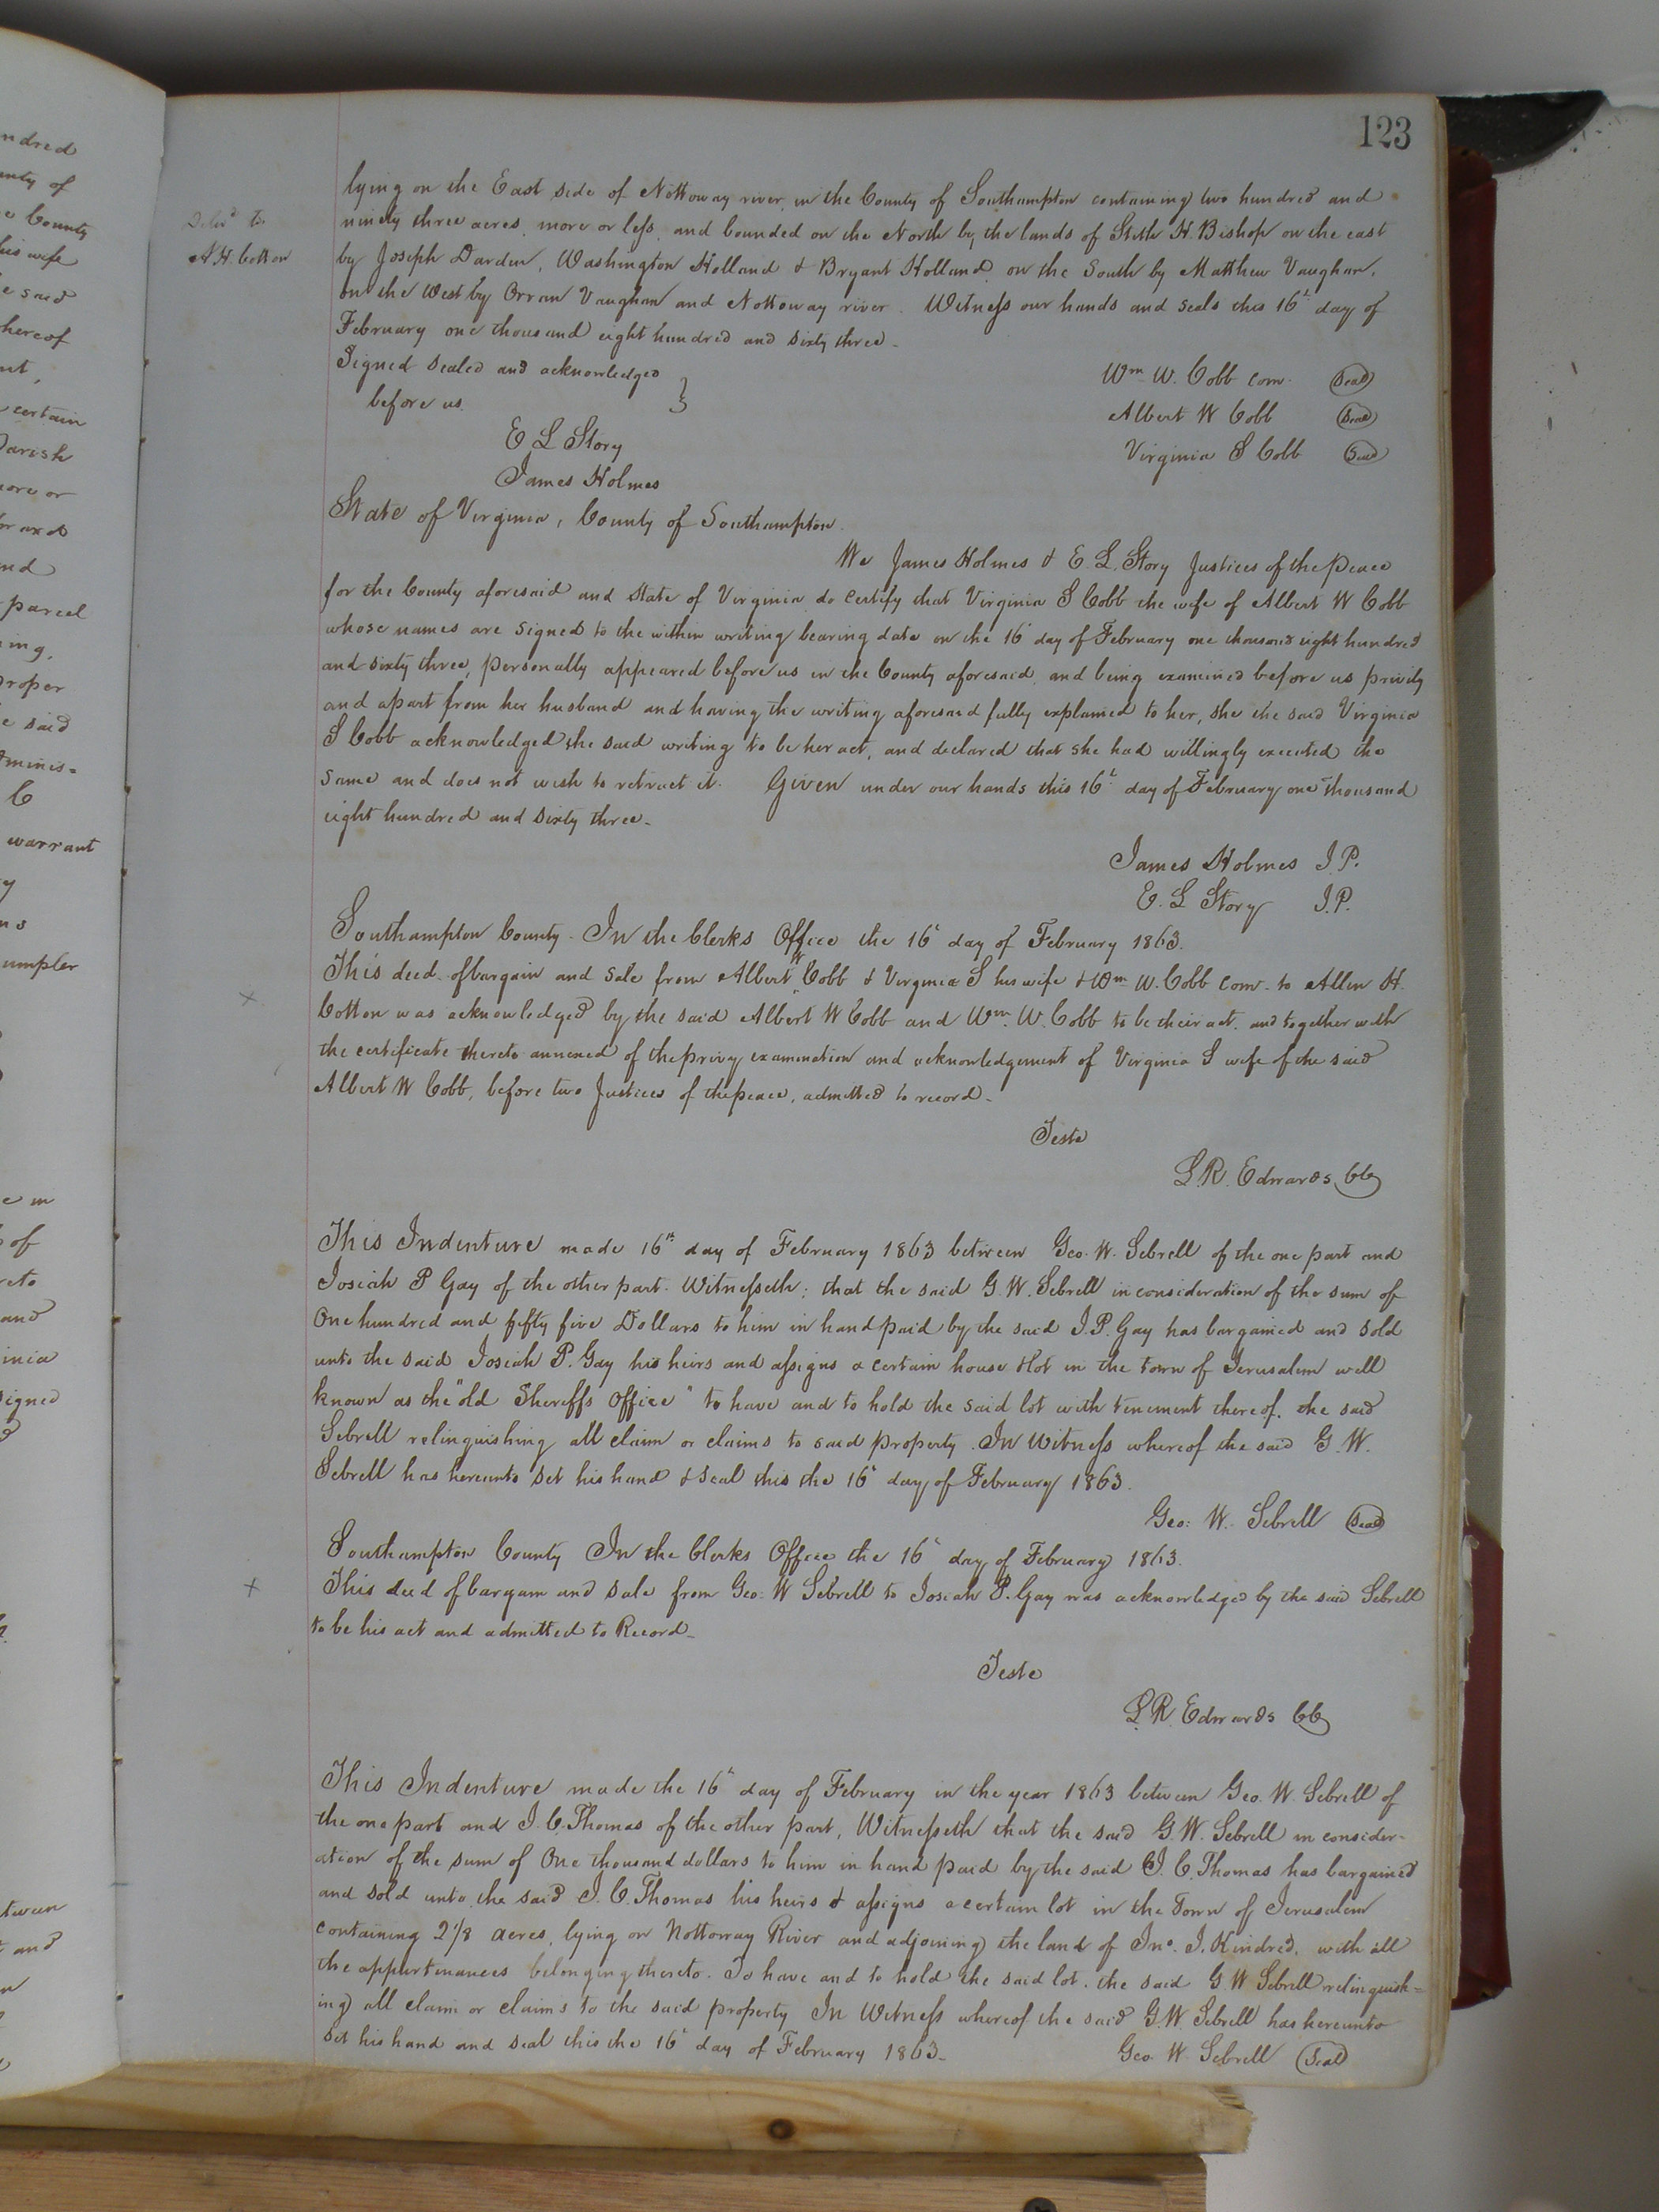 123
lying on the East side of Nottoway river in the County of Southampton containing two hundred and
ninety three acres, more or less, and bounded on the North by the lands of Stith H. Bishop on the east
by Joseph Darden, Washington Holland & Bryant Holland, on the South by Matthew Vaughan,
on the West by Orran Vaughan and Nottoway river. Witness our hands and seals this 16t day of
February one thousand eight hundred and sixty three.
Deld to
A H. Cotton
Signed Sealed and acknowledged
before us.
E L Story
James Holmes
Wm W. Cobb com. Seal
Albert W Cobb Seal
Virginia S Cobb Seal
State of Virginia, County of Southampton.
We James Holmes & E L. Story Justices of the peace
for the County aforesaid and State of Virginia do certify that Virginia S Cobb the wife of Albert W Cobb
whose names are signed to the within writing bearing date on the 16 day of February one thousand eight hundred
and sixty three, personally appeared before us in the County aforesaid, and being examined before us privily
and apart from her husband and having the writing aforesaid fully explained to her, she the said Virginia
S Cobb acknowledged the said writing to be her act, and declared that she had willingly executed the
same and does not wish to retract it. Given under our hands this 16t day of February one thousand
eight hundred and sixty three.
James Holmes J.P.
E. L Story J.P.
Southampton County. In the Clerks Office the 16t day of February 1863.
This deed of bargain and sale from Albert W Cobb & Virginia S his wife & Wm W. Cobb com. to Allen H.
Cotton was acknowledged by the said Albert W Cobb and Wm. W. Cobb to be their act, and together with
the certificate thereto annexed of the privy examination and acknowledgement of Virginia S wife of the said
Albert W Cobb, before two Justices of the peace, admitted to record.
Teste
L.R. Edwards CC
This Indenture made 16th day of February 1863 between Geo. W. Sebrell of the one part and
Josiah P Gay of the other part. Witnesseth; that the said G.W. Sebrell in consideration of the sum of
One hundred and fifty five Dollars to him in hand paid by the said J.P. Gay has bargained and sold
unto the said Josiah P. Gay his heirs and assigns a certain house & lot in the town of Jerusalem well
known as the "old Sheriffs Office" to have and to hold the said lot with tenement thereof, the said
Sebrell relinquishing all claim or claims to said property. In Witness whereof the said G.W.
Sebrell has hereunto set his hand & seal this the 16t day of February 1863.
Geo: W. Sebrell Seal
Southampton County In the Clerks Office the 16t day of February 1863.
This deed of bargain and sale from Geo: W Sebrell to Josiah P. Gay was acknowledged by the said Sebrell
to be his act and admitted to Record.
Teste
L.R. Edwards CC
This Indenture made the 16t day of February in the year 1863 between Geo. W. Sebrell of
the one part and J. C. Thomas of the other part, Witnesseth that the said G.W. Sebrell in consider-
ation of the sum of One thousand dollars to him in hand paid by the said J. C. Thomas has bargained
and sold unto the said J. C. Thomas his heirs & assigns a certain lot in the Town of Jerusalem
containing 2 1/8 acres, lying on Nottoway River and adjoining the land of Jno. J. Kindred, with all
the appurtenances belonging thereto. To have and to hold the said lot, the said G W Sebrell relinquish=
ing all claim or claims to the said property In Witness whereof the said G.W. Sebrell has hereunto
set his hand and seal this the 16t day of February 1863.
Geo. W. Sebrell Seal